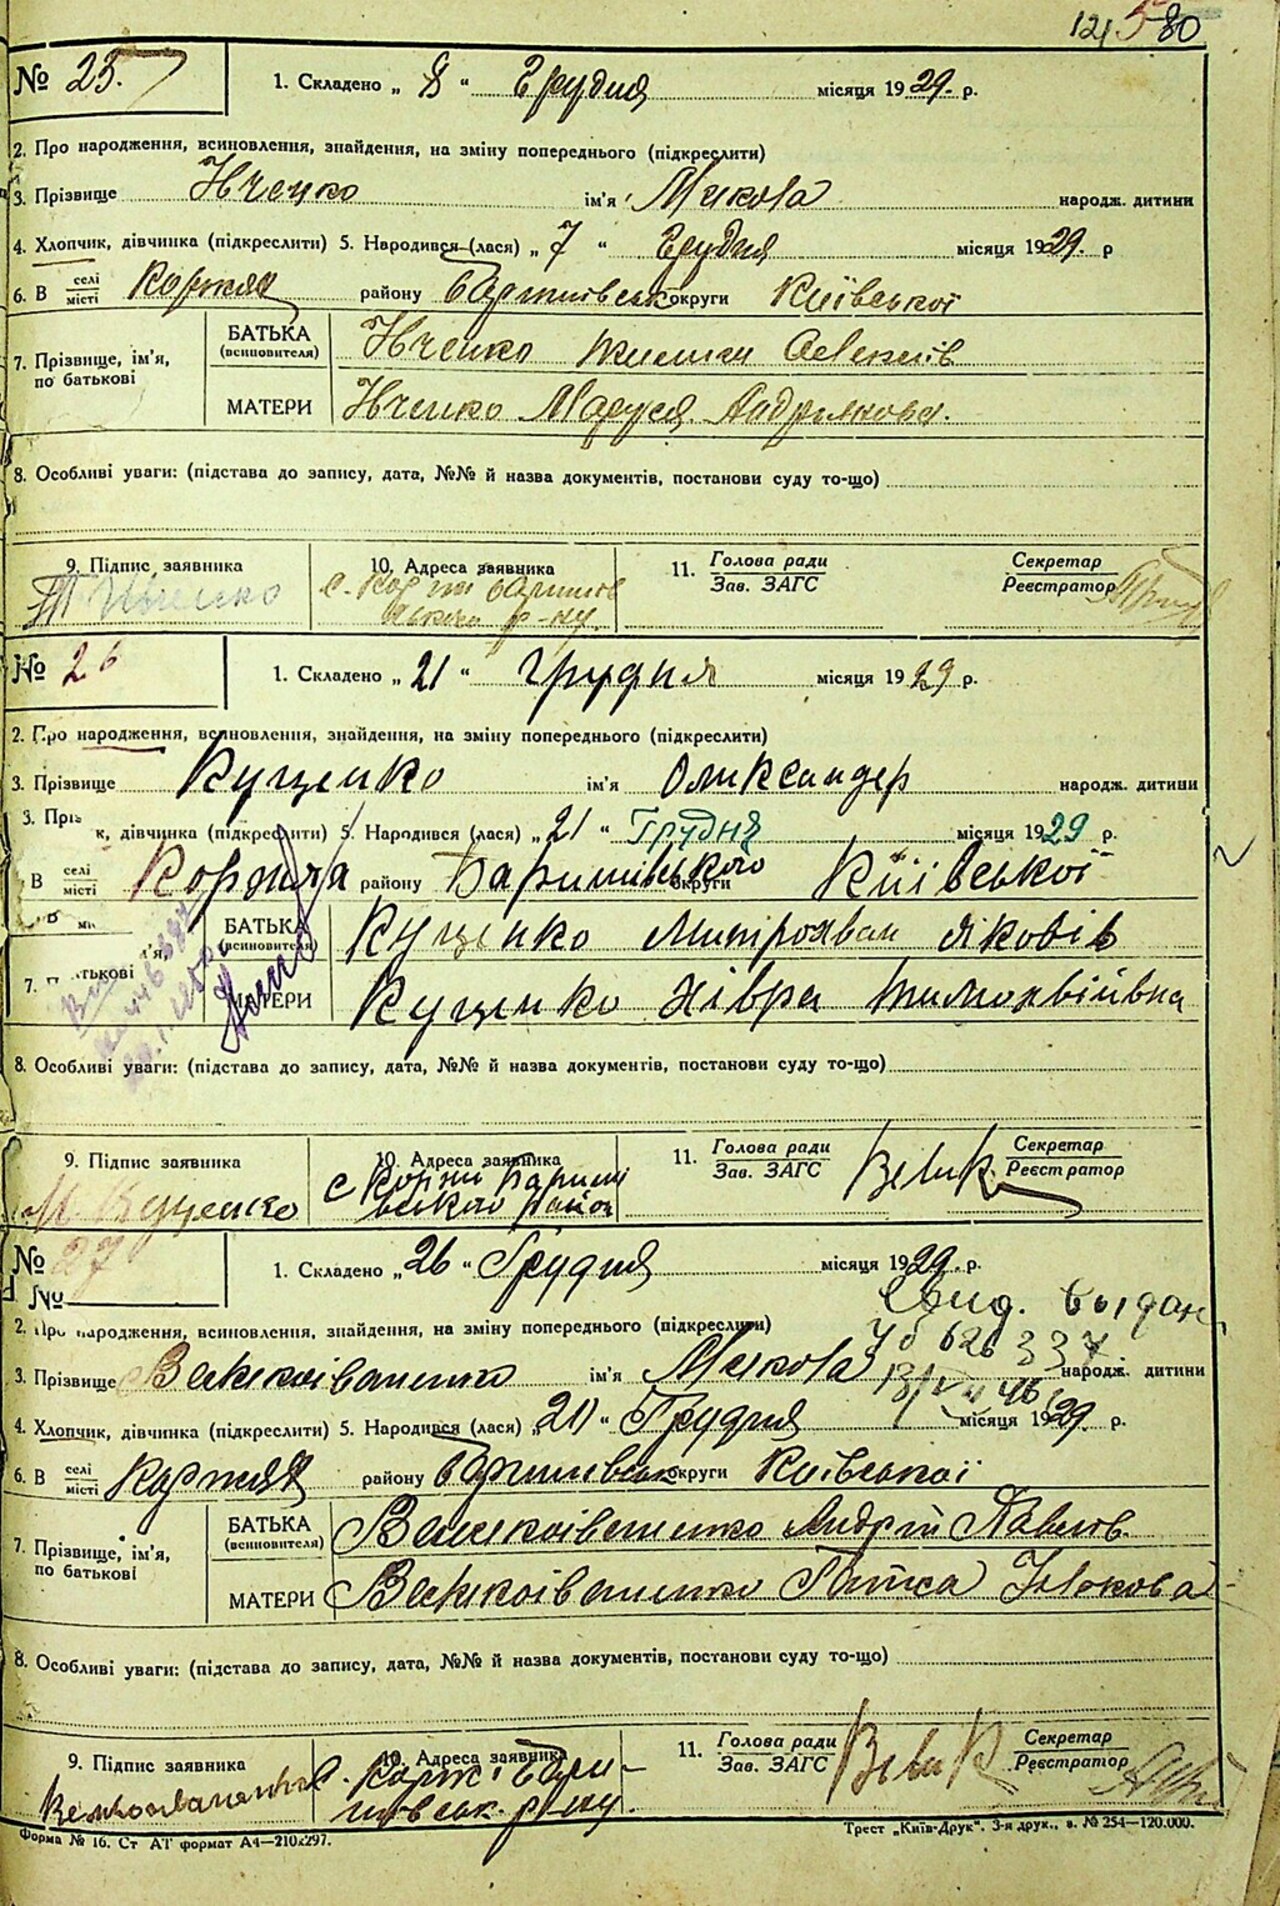 80
№ 25. 1. Складено „ 8 “ Грудня місяця 1929. р.
2. Про народження, всиновлення, знайдення, на зміну попереднього (підкреслити)
3. Прізвище Ївченко ім'я Микола народж. дитини
4. Хлопчик, дівчинка (підкреслити) 5. Народився (лася) „ 7 “ Грудня місяця 1929. р
6. В селі місті Коржах району Баришівськ округи Київської
7. Прізвище, ім'я, по батькові
БАТЬКА (всиновителя) Ївченко
МАТЕРИ Ївченко Маруся
8. Особливі уваги: (підстава до запису, дата, №№ й назва документів, постанови суду то-що)
9. Підпис заявника 10. Адреса заявника 11. Голова ради Зав. ЗАГС Секретар Реєстратор
с. Коржі Баришів
ського р-ну.
№ 26 1. Складено „ 21 “ грудня місяця 1929 р.
2. Про народження, всиновлення, знайдення, на зміну попереднього (підкреслити)
3. Прізвище Куценко ім'я Олександер народж. дитини
3. Пріз
к, дівчинка (підкреслити) 5. Народився (лася) „ 21 “ Грудня місяця 1929 р.
В селі місті Коржах району Баришівського округи Київської
м'я,
7. атькові
БАТЬКА (всиновителя) Куценко Митрохван Яковів
МАТЕРИ Куценко Хівря Тимохвіївна
8. Особливі уваги: (підстава до запису, дата, №№ й назва документів, постанови суду то-що)
9. Підпис заявника 10. Адреса заявника 11. Голова ради Зав. ЗАГС Секретар Реєстратор
М. Куценко с Коржи Bариші
вського район
№ 27 1. Складено „ 26 “ Грудня місяця 1929. р.
№
Свид. выдан
2. Про народження, всиновлення, знайдення, на зміну попереднього (підкреслити)
3. Прізвище Великоіваненко ім'я Микола народж. дитини
4. Хлопчик, дівчинка (підкреслити) 5. Народився (лася) „ 21 “ Грудня місяця 1929. р.
6. В селі місті Коржах району Баришівськ округи Київської
7. Прізвище, ім'я, по батькові
БАТЬКА (всиновителя) Великоіваненко Андрій Павлов.
МАТЕРИ Великоіваненко
8. Особливі уваги: (підстава до запису, дата, №№ й назва документів, постанови суду то-що)
9. Підпис заявника 10. Адреса заявника 11. Голова ради Зав. ЗАГС Секретар Реєстратор
с. Коржі Бари-
шівськ. р-ну.
Форма № 16. Ст АТ формат А4—210х297. Трест „Київ-Друк“. 3-я друк., в. № 254—120.000.